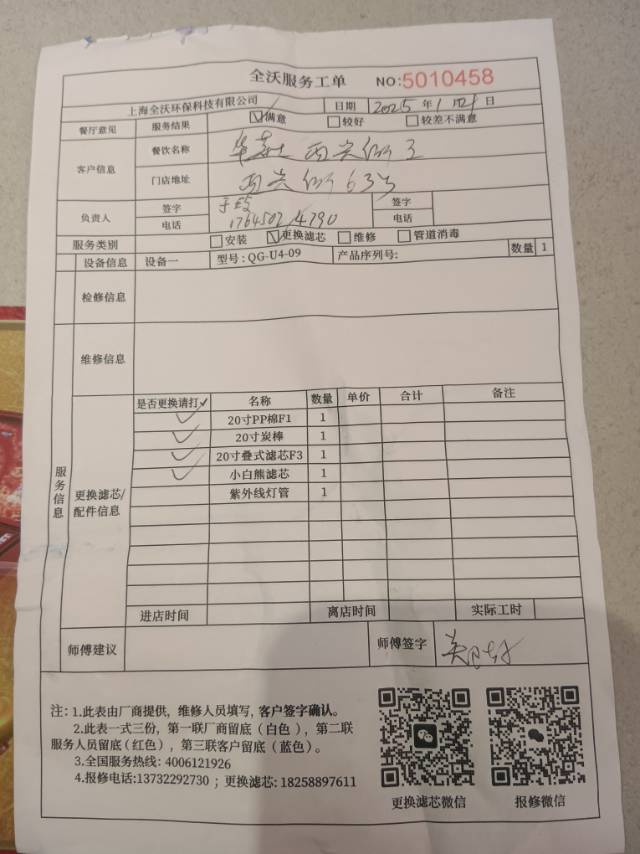 全沃服务工单 NO:5010458
上海全沃环保科技有限公司 日期 2025年1月21日
餐厅意见 服务结果 ☑满意 □较好 □较差不满意
客户信息 餐饮名称
门店地址 63号
负责人 签字 签字
电话 电话
服务类别 □安装 ☑更换滤芯 □维修 □管道消毒
设备信息 设备一 型号:QG-U4-09 产品序列号: 数量 1
检修信息
维修信息
服务信息
更换滤芯/配件信息
是否更换请打✓ 名称 数量 单价 合计 备注
✓ 20寸PP棉F1 1
✓ 20寸炭棒 1
✓ 20寸叠式滤芯F3 1
✓ 小白熊滤芯 1
紫外线灯管 1
进店时间 离店时间 实际工时
师傅建议 师傅签字
注:1.此表由厂商提供,维修人员填写,客户签字确认。
2.此表一式三份,第一联厂商留底(白色),第二联
服务人员留底(红色),第三联客户留底(蓝色)。
3.全国服务热线:4006121926
4.报修电话:13732292730;更换滤芯:18258897611
更换滤芯微信 报修微信